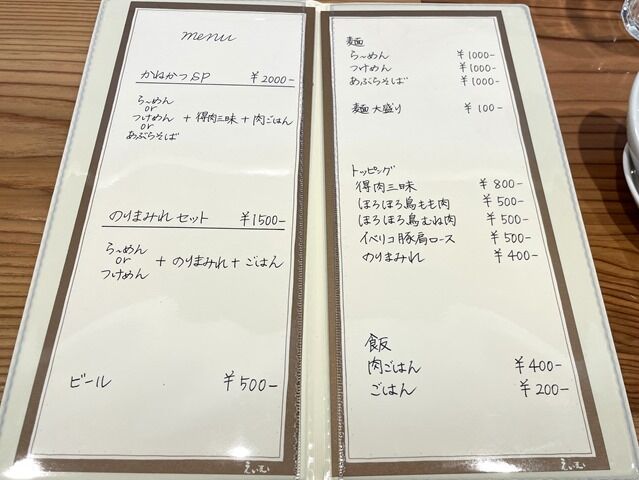 menu
かねかつSP ¥2000-
らーめん
or
つけめん + 得肉三昧 + 肉ごはん
or
あぶらそば
のりまみれセット ¥1500-
らーめん
or + のりまみれ + ごはん
つけめん
ビール ¥500-
えいむ
麺
らーめん ¥1000-
つけめん ¥1000-
あぶらそば ¥1000-
麺大盛り ¥100-
トッピング
得肉三昧 ¥800-
ほろほろ鳥もも肉 ¥500-
ほろほろ鳥むね肉 ¥500-
イベリコ豚肩ロース ¥500-
のりまみれ ¥400-
食反
肉ごはん ¥400-
ごはん ¥200-
えいむ